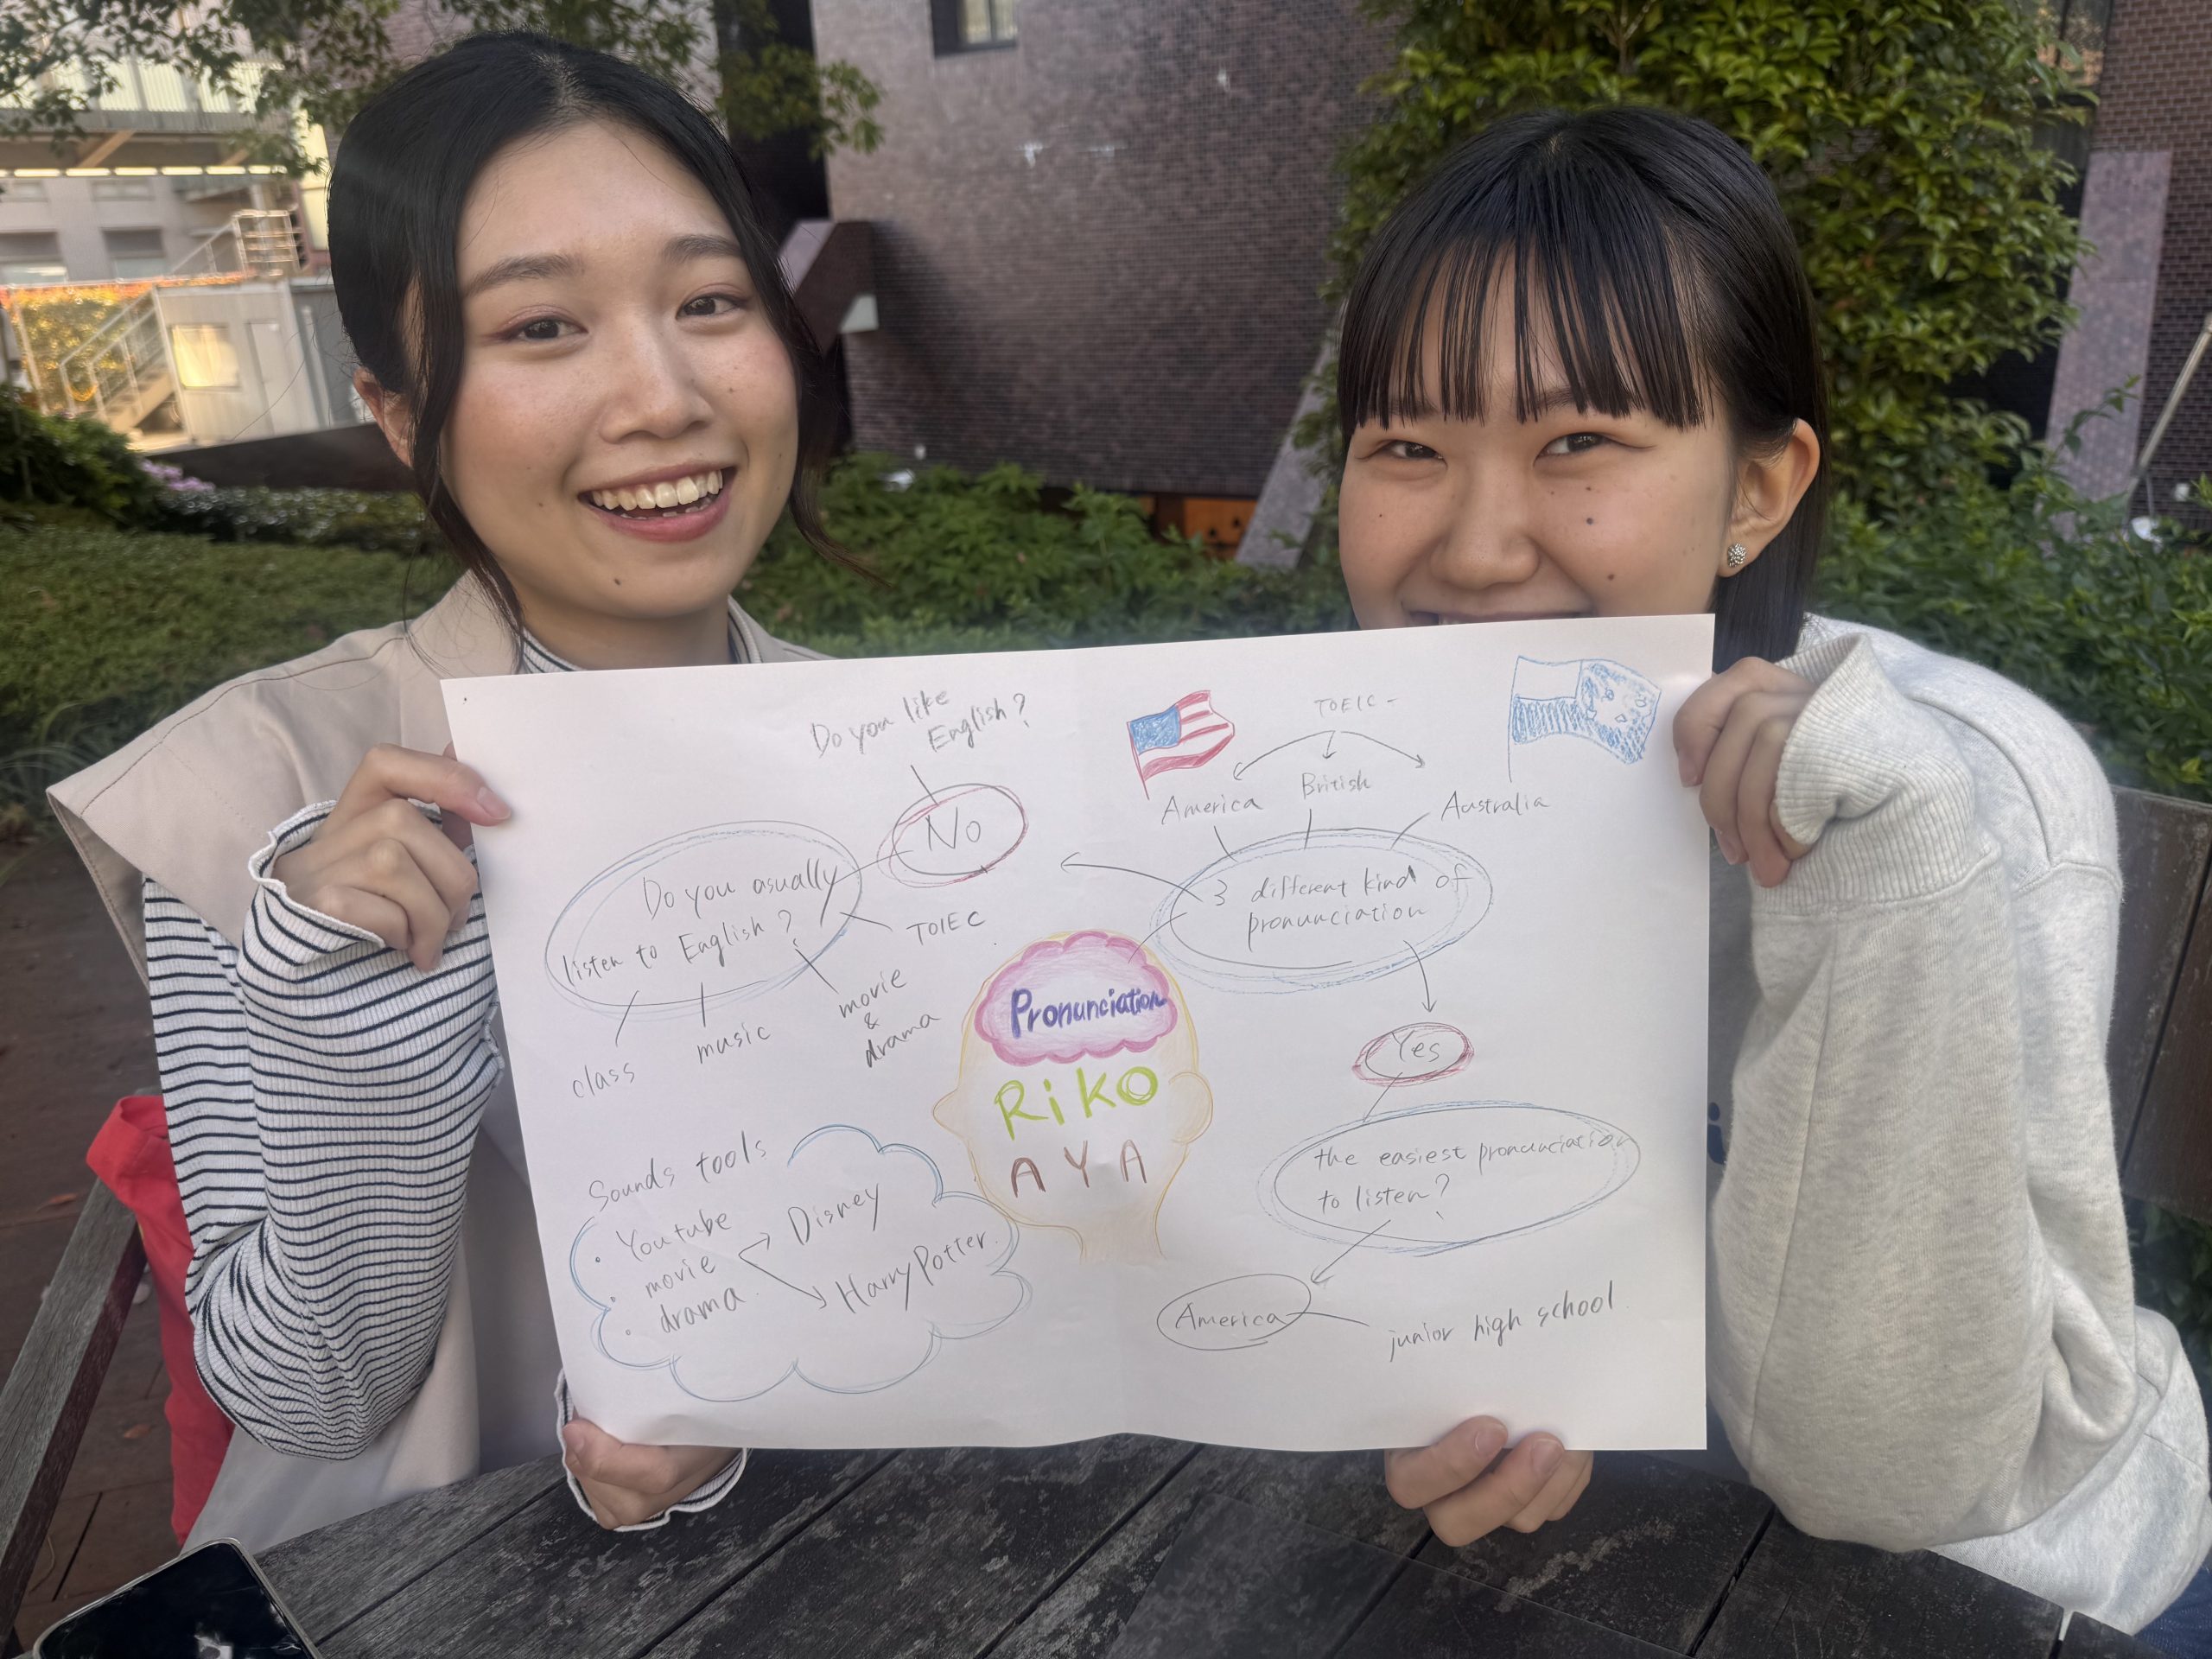 Do you like
English?
No
Do you asually
listen to English?
TOIEC
movie
&
drama
music
class
TOEIC -
America
British
Australia
3 different kind of
pronunciation
Yes
the easiest pronunciation
to listen?
America
junior high school
Pronunciation
Riko
AYA
Sounds tools
• Youtube
• movie
• drama.
Disney
Harry Potter.